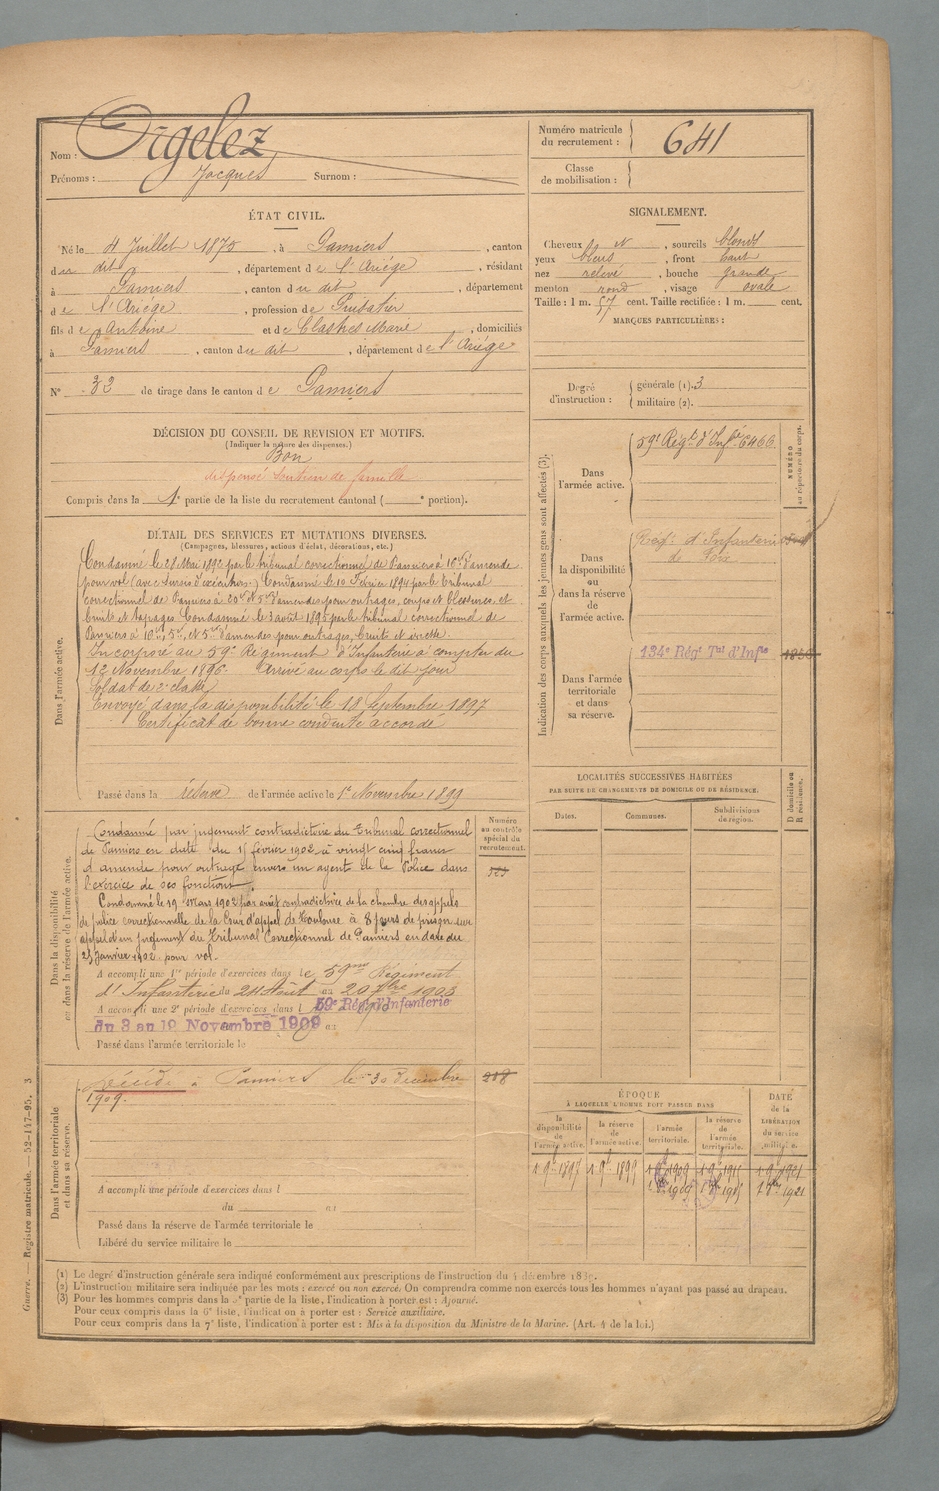 Nom : Orgelez
Prénoms : Jacques Surnom :
Numéro matricule du recrutement : 641
Classe de mobilisation :
ÉTAT CIVIL.
Né le 4 Juillet 1875, à Pamiers, canton
du dit, département de l'Ariége, résidant
à Pamiers, canton du dit, département
de l'Ariége, profession de
fils de Antoine et de Marie, domiciliés
à Pamiers, canton du dit, département de l'Ariége
N° 32 de tirage dans le canton de Pamiers
SIGNALEMENT.
Cheveux , sourcils blonds
yeux bleus, front haut
nez relevé, bouche grande
menton rond, visage ovale
Taille : 1 m. 57 cent. Taille rectifiée : 1 m. cent.
MARQUES PARTICULIÈRES :
Degré d'instruction : générale (1). 3
militaire (2).
DÉCISION DU CONSEIL DE REVISION ET MOTIFS.
(Indiquer la nature des dispenses.)
Bon
dispensé Soutien de famille
Compris dans la 1e partie de la liste du recrutement cantonal ( e portion).
DÉTAIL DES SERVICES ET MUTATIONS DIVERSES.
(Campagnes, blessures, actions d'éclat, décorations, etc.)
Dans l'armée active.
Condamné le 28 Mai 1892 par le tribunal correctionnel de Pamiers à 16f d'amende
pour vol (avec Sursis d'exécution.) Condamné le 10 Février 1894 par le Tribunal
correctionnel de Pamiers à 20f et 5f d'amendes pour outrages, coups et blessures, et
bruits et tapages. Condamné le 3 août 1895 par le tribunal correctionnel de
Pamiers à 10f, 5f, et 5f d'amendes pour outrages, bruits et ivresse.
Incorporé au 59e Régiment d'Infanterie à compter du
12 Novembre 1896. Arrivé au corps le dit jour
Soldat de 2e classe
Envoyé dans la disponibilité le 18 Septembre 1897
Certificat de bonne conduite accordé
Passé dans la réserve de l'armée active le 1er Novembre 1899
Indication des corps auxquels les jeunes gens sont affectés (3).
NUMÉRO au répertoire du corps.
Dans l'armée active.
59e Régt d'Infie 6466
Dans la disponibilité ou dans la réserve de l'armée active.
Régt d'Infanterie
de Foix
Dans l'armée territoriale et dans sa réserve.
134e Régt Tal d'Infie
LOCALITÉS SUCCESSIVES HABITÉES
PAR SUITE DE CHANGEMENTS DE DOMICILE OU DE RÉSIDENCE.
Dates. Communes. Subdivisions de région. D domicile ou R résidence.
Numéro au contrôle spécial du recrutement.
Dans la disponibilité ou dans la réserve de l'armée active.
Condamné par jugement contradictoire du Tribunal correctionnel
de Pamiers en date du février 1902 à vingt cinq francs
d'amende pour outrage envers un agent de la Police dans
l'exercice de ses fonctions.
Condamné le 19 Mars 1902 par arrêt contradictoire de la chambre des appels
de police correctionnelle de la Cour d'appel de Toulouse à 8 jours de prison sur
appel d'un jugement du Tribunal Correctionnel de Pamiers en date du
Janvier 1902 pour vol.
A accompli une 1re période d'exercices dans le 59me Régiment
d'Infanterie du 24 Août au 20 7bre 1903
A accompli une 2e période d'exercices dans l 59e Rég. d'Infanterie
du 3 au 19 Novembre 1909 au
Passé dans l'armée territoriale le
Dans l'armée territoriale et dans sa réserve.
décédé à Pamiers le 30 décembre
1909.
A accompli une période d'exercices dans l
du au
Passé dans la réserve de l'armée territoriale le
Libéré du service militaire le
ÉPOQUE
À LAQUELLE L'HOMME DOIT PASSER DANS
la disponibilité de l'armée active. la réserve de l'armée active. l'armée territoriale. la réserve de l'armée territoriale.
DATE de la LIBÉRATION du service militaire.
1 9bre 1897 1 9bre 1899 1 9bre 1909
(1) Le degré d'instruction générale sera indiqué conformément aux prescriptions de l'instruction du 4 décembre
(2) L'instruction militaire sera indiquée par les mots : exercé ou non exercé. On comprendra comme non exercés tous les hommes n'ayant pas passé au drapeau.
(3) Pour les hommes compris dans la partie de la liste, l'indication à porter est : Ajourné.
Pour ceux compris dans la 6e liste, l'indication à porter est : Service auxiliaire.
Pour ceux compris dans la 7e liste, l'indication à porter est : Mis à la disposition du Ministre de la Marine. (Art. 4 de la loi.)
Guerre. — Registre matricule. — 52-147-95. 3